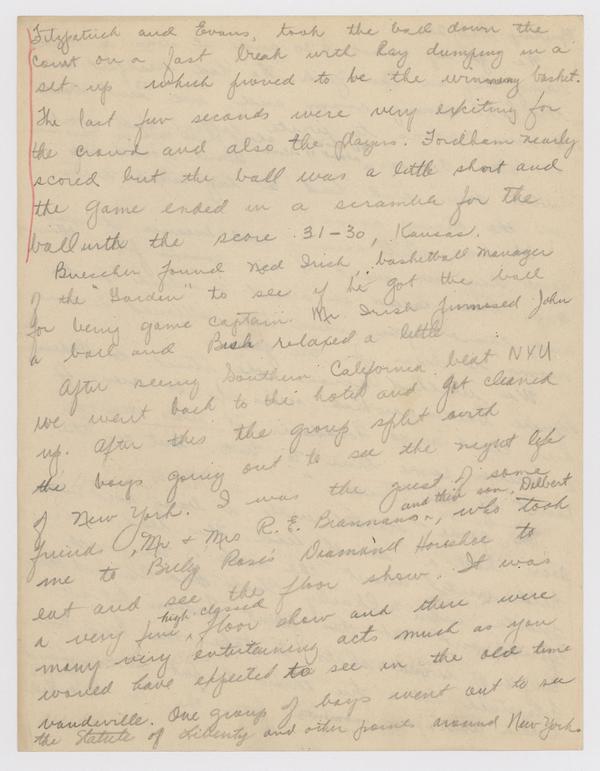 Fitzpatrick and Evans, took the ball down the
court on a fast break with Ray dumping in a
set-up which proved to be the winning basket.
The last few seconds were very exciting for
the crowd and also the players. Fordham nearly
scored but the ball was a little short and
the game ended in a scramble for the
ball with the score 31-30, Kansas.
Buescher found Ned Irish, basketball manager
of the "Garden" to see if he got the ball
for being game captain. Mr Irish promised John
a ball and relaxed a little
After seeing Southern California beat NYU
we went back to the hotel and got cleaned
up. After this the group split with
the boys going out to see the night life
of New York. I was the guest of some
friends, Mr + Mrs R. E. Brannans, and their son, Delbert, who took
me to Billy Rose's Diamond Horseshoe to
eat and see the floor show. It was
a very fine, high-classed floor show and there were
many very entertaining acts much as you
would have expected to see in the old time
vaudeville. One group of boys went out to see
the Statute of Liberty and other points around New York.